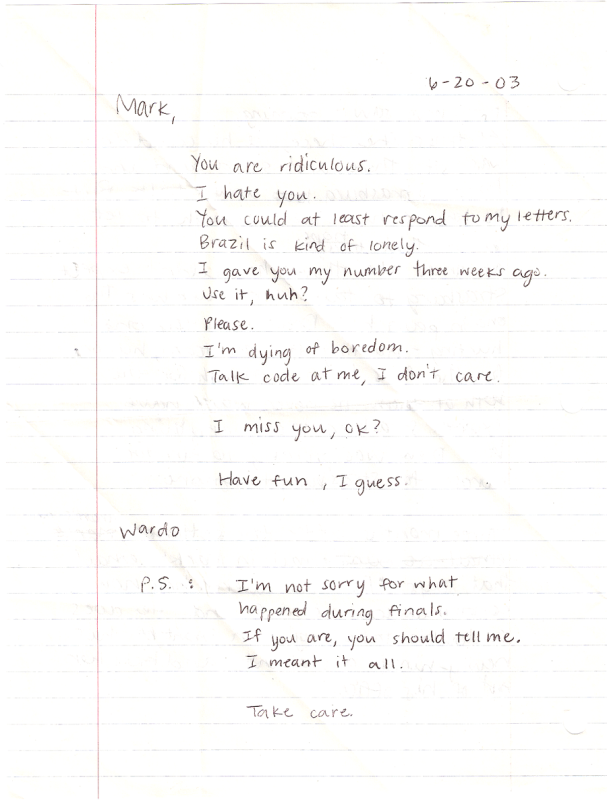 6-20-03
Mark,
You are ridiculous.
I hate you.
You could at least respond to my letters.
Brazil is kind of lonely.
I gave you my number three weeks ago.
Use it, huh?
Please.
I'm dying of boredom.
Talk code at me, I don't care.
I miss you, ok?
Have fun, I guess.
Wardo
P.S.: I'm not sorry for what
happened during finals.
If you are, you should tell me.
I meant it all.
Take care.